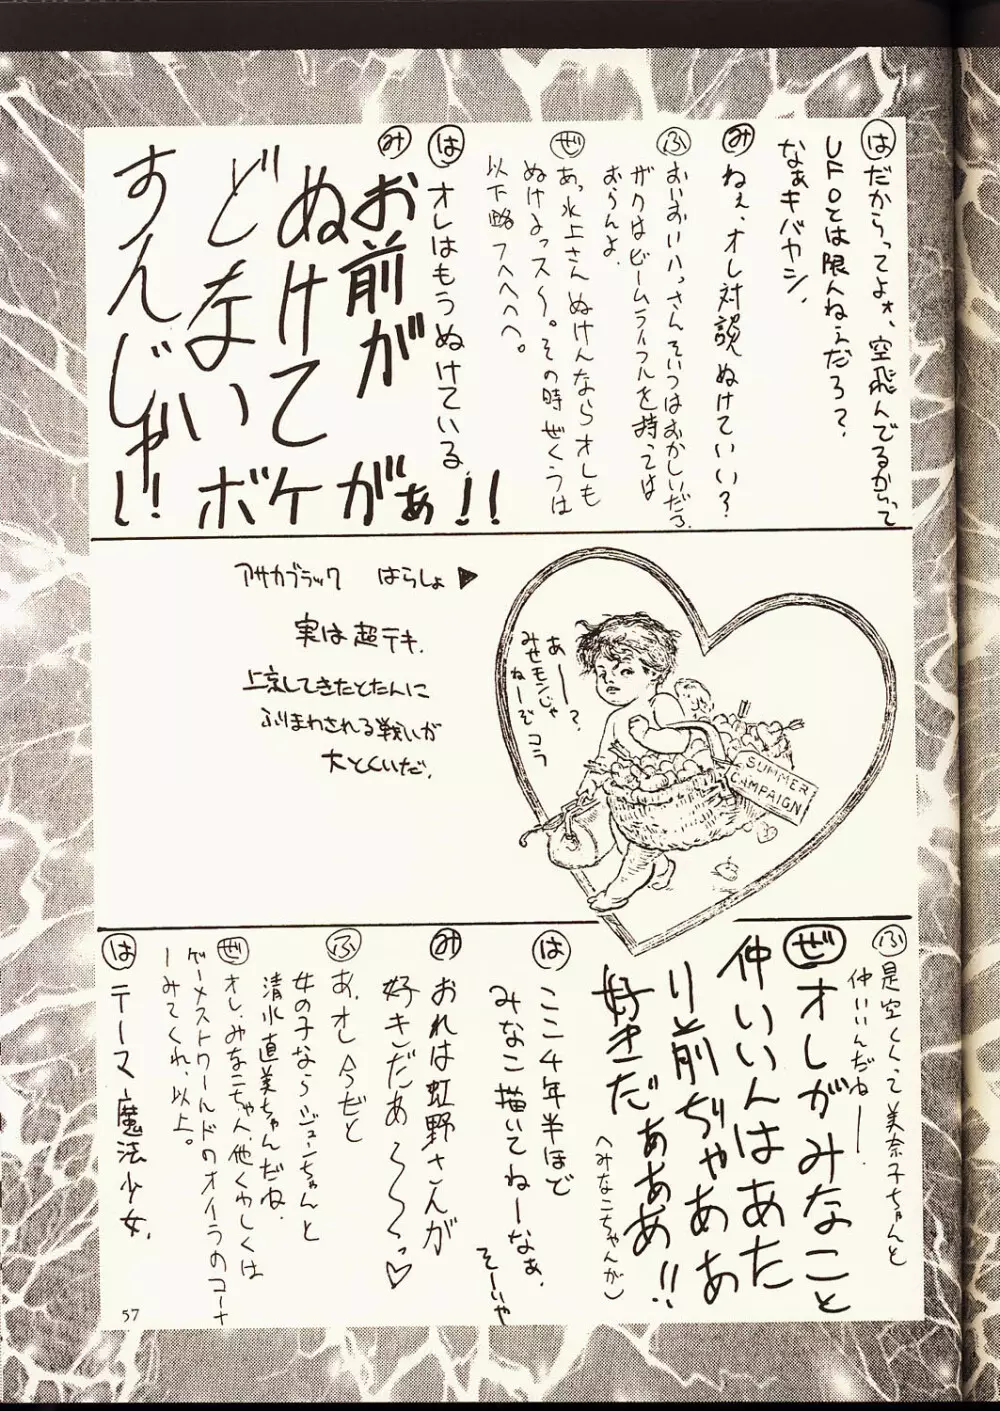 は だからってよォ、空飛んでるからって
UFOとは限んねぇだろ?、
なぁキバヤシ、
み ねぇ、オレ対談ぬけていい?
ふ おいおいハっさんそいつはおかしいだろ、
ザクはビームライフルを持っては
おらんよ。
ぜ あっ、水上さんぬけんならオレも
ぬけるっス〜。その時ぜくうは
以下略フへへへへ。
は オレはもうぬけている。
み お前が
ぬけて
どないい
すんじゃ
い! ボケがぁ!!
アサカブラック はらしょ▶
実は超テキ.
上京してきたとたんに
ふりまわされる戦いが
大とくいだ.
あー?
みせモンじゃ
ねーぞコラ
SUMMER
CAMPAIGN
ふ 是空くんって美奈子ちゃんと
仲いいんだねー.
ぜ オレがみなこと
仲いいんはあた
り前ぢゃああ
好きだぁぁぁ!!
(みなこちゃんが)
は ここ4年半ほど
みなこ描いてねーなぁ、
そーいや
み おれは虹野さんが
好きだあ〜〜〜っ♡
ふ あ、オレ今だと
女の子ならジューンちゃんと
清水直美ちゃんだね.
ぜ オレ、みなこちゃん、他くわしくは
ゲーメストワールドのオイラのコーナ
ーみてくれ、以上。
は テーマ魔法少女、
57